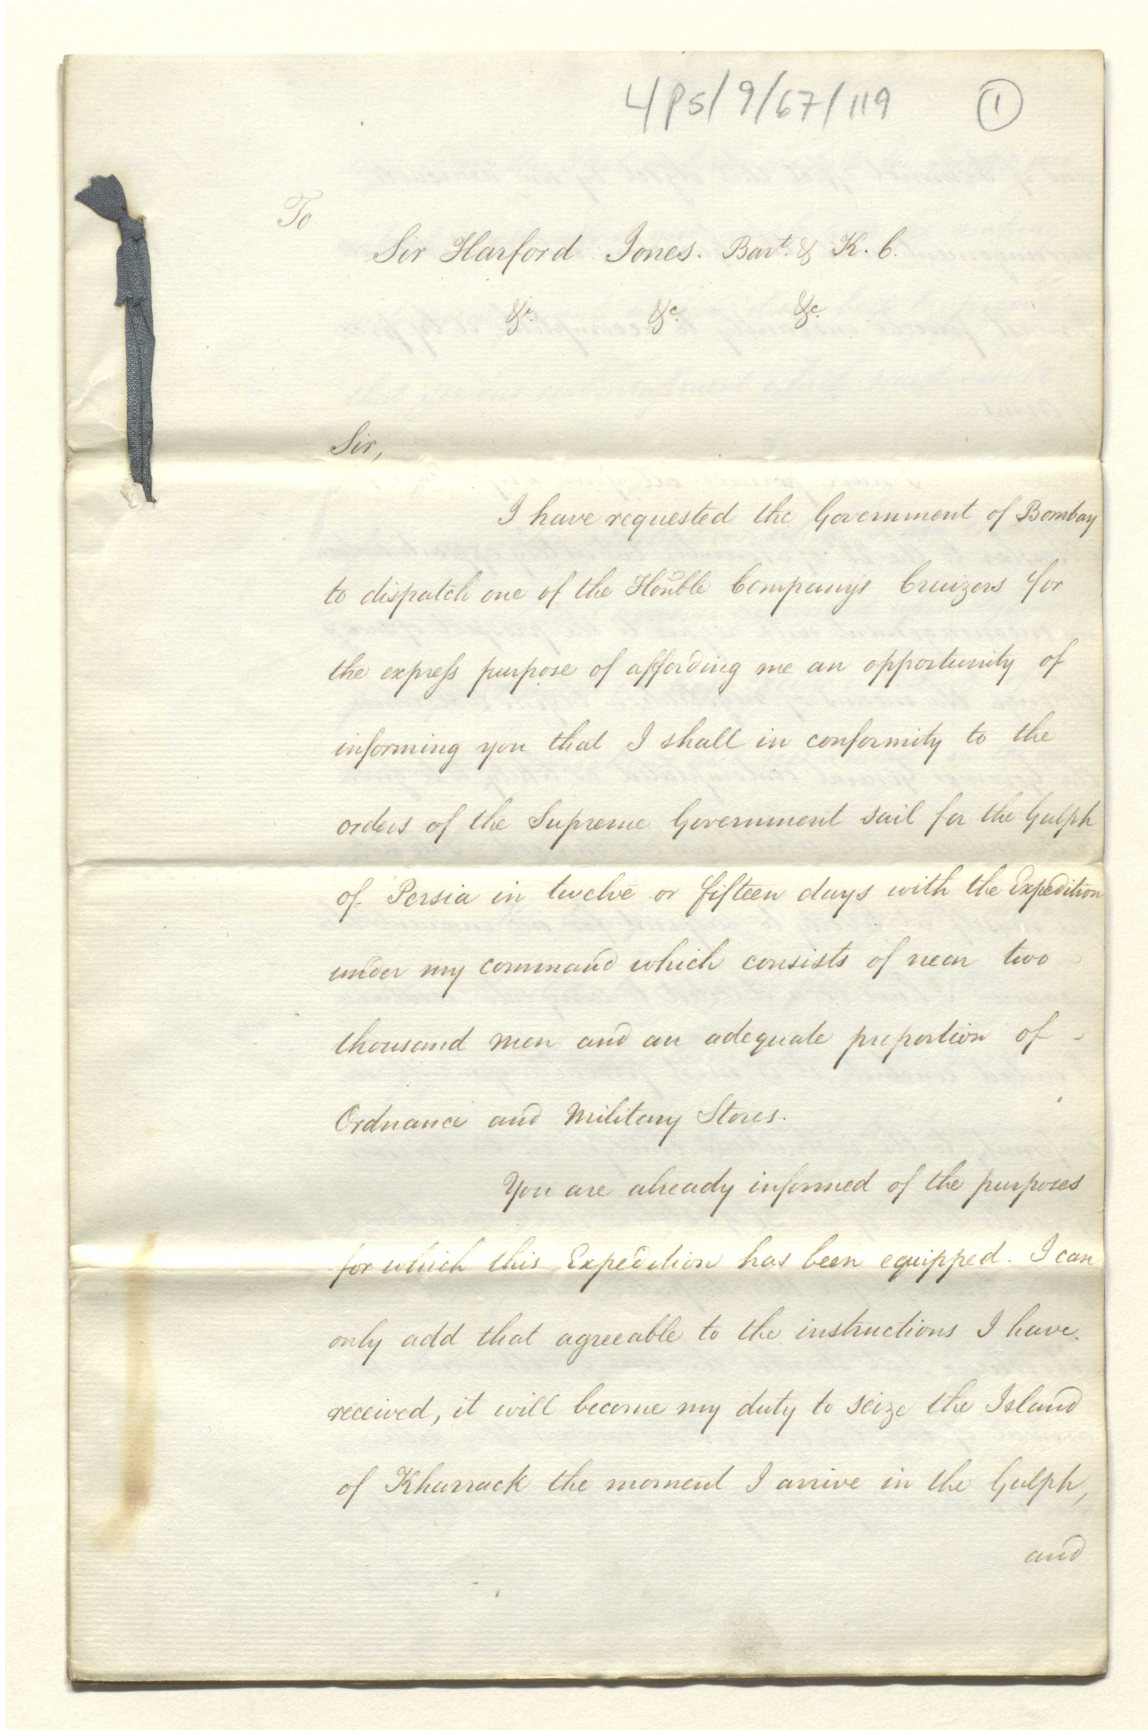 L/PS/9/67/119 1
To
Sir Harford Jones. Bart. & K. C.
&c. &c. &c.
Sir,
I have requested the Government of Bombay
to dispatch one of the Honble Company's Cruizers for
the express purpose of affording me an opportunity of
informing you that I shall in conformity to the
orders of the Supreme Government sail for the Gulph
of Persia in twelve or fifteen days with the Expedition
under my command which consists of near two
thousand men and an adequate proportion of
Ordnance and Military Stores.
You are already informed of the purposes
for which this Expedition has been equipped. I can
only add that agreeable to the instructions I have
received, it will become my duty to seize the Island
of Kharrack the moment I arrive in the Gulph,
and